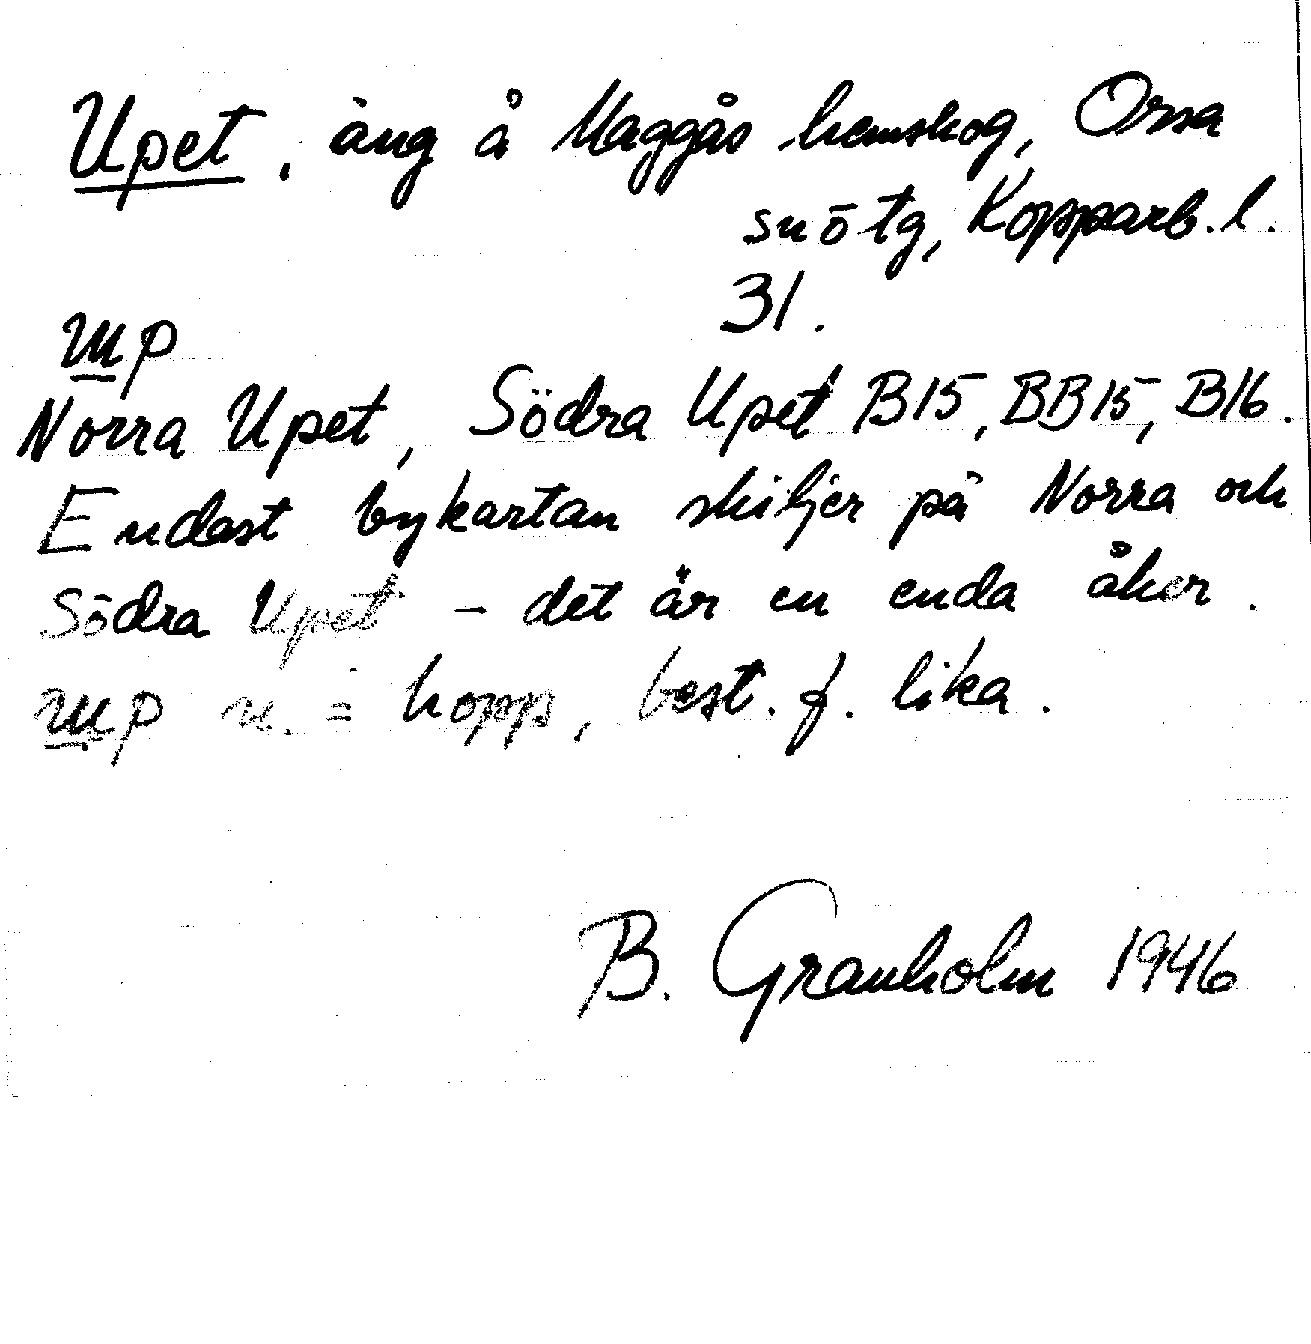 Upet, äng å Maggås hemskog, Orsa
snötg, Kopparb. l.
31.
Norra Upet, Södra Upet B15, BB15, B16.
Endast bykartan skiljer på Norra och
Södra Upet – det är en enda åker.
n. = hopp, best. f. lika.
B. Granholm 1946